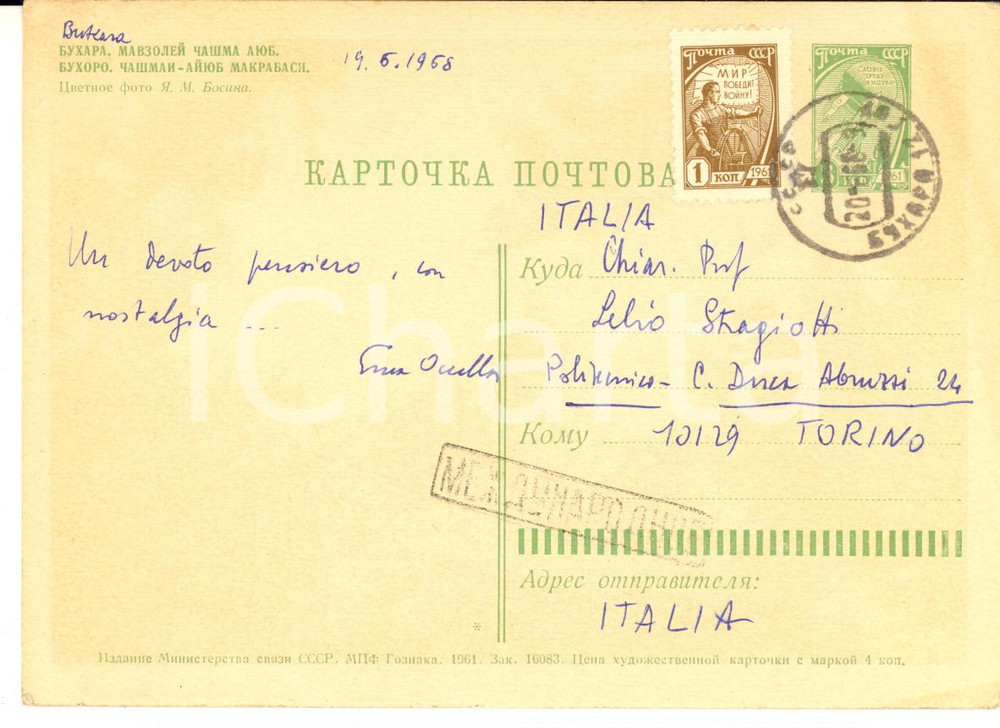 Bukara
БУХАРА. МАВЗОЛЕЙ ЧАШМА АЮБ.
БУХОРО. ЧАШМАИ-АЙЮБ МАКРАБАСИ.
Цветное фото Я. М. Босина.
19.6.1968
ПОЧТА СССР
МИР
ПОБЕДИТ
ВОЙНУ!
1 КОП 1961
ПОЧТА СССР
СЛАВА
ТРУДУ
И НАУКЕ!
1961
СССР
БУХАРА
КАРТОЧКА ПОЧТОВА
ITALIA
Куда Chiar. Prof
Lelio Stragiotti
Politecnico - C. Duca Abruzzi 24
Кому 10129 TORINO
Un devoto pensiero, con
nostalgia ...
iCharta
Адрес отправителя:
ITALIA
Издание Министерства связи СССР. МПФ Гознака. 1961. Зак. 16083. Цена художественной карточки с маркой 4 коп.